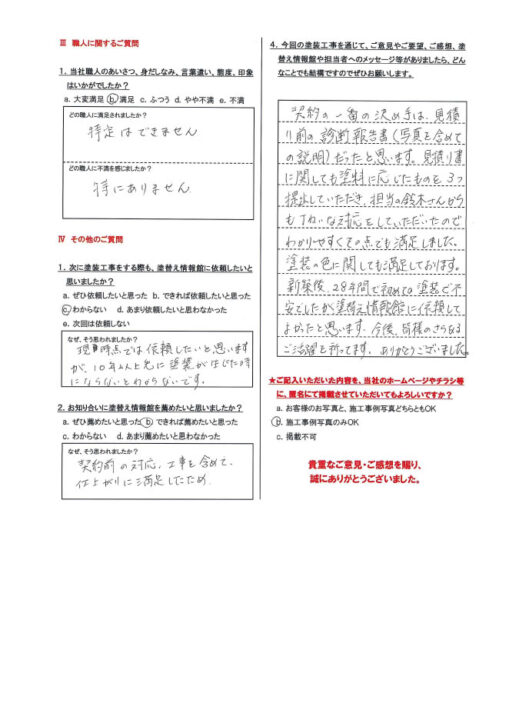 Ⅲ 職人に関するご質問
1. 当社職人のあいさつ、身だしなみ、言葉遣い、態度、印象
はいかがでしたか?
a. 大変満足 b. 満足 c. ふつう d. やや不満 e. 不満
どの職人に満足されましたか?
特定はできません
どの職人に不満を感じましたか?
特にありません
Ⅳ その他のご質問
1. 次に塗装工事をする際も、塗替え情報館に依頼したいと
思いましたか?
a. ぜひ依頼したいと思った b. できれば依頼したいと思った
c. わからない d. あまり依頼したいと思わなかった
e. 次回は依頼しない
なぜ、そう思われましたか?
現時点では依頼したいと思います
が、10年以上先に塗装がはじた時
にならないとわからないです。
2. お知り合いに塗替え情報館を薦めたいと思いましたか?
a. ぜひ薦めたいと思った b. できれば薦めたいと思った
c. わからない d. あまり薦めたいと思わなかった
なぜ、そう思われましたか?
契約前の対応、工事を含めて、
仕上がりに満足したため
4. 今回の塗装工事を通じて、ご意見やご要望、ご感想、塗
替え情報館や担当者へのメッセージ等がありましたら、どん
なことでも結構ですのでぜひお願いします。
契約の一番の決め手は、見積
り前の診断報告書(写真を含めて
の説明)だったと思います。見積り書
に関しても塗料に応じたものを3つ
提示していただき、担当の鈴木さんから
も丁ねいな対応をしていただいたので
わかりやすくその点でも満足しました。
塗装の色に関しても満足しております。
新築後、28年間で初めての塗装で不
安でしたが塗替え情報館に依頼して
よかったと思います。今後、皆様のさらなる
ご活躍を祈ってます。ありがとうございました。
★ご記入いただいた内容を、当社のホームページやチラシ等
に、匿名にて掲載させていただいてもよろしいですか?
a. お客様のお写真と、施工事例写真どちらともOK
b. 施工事例写真のみOK
c. 掲載不可
貴重なご意見・ご感想を賜り、
誠にありがとうございました。